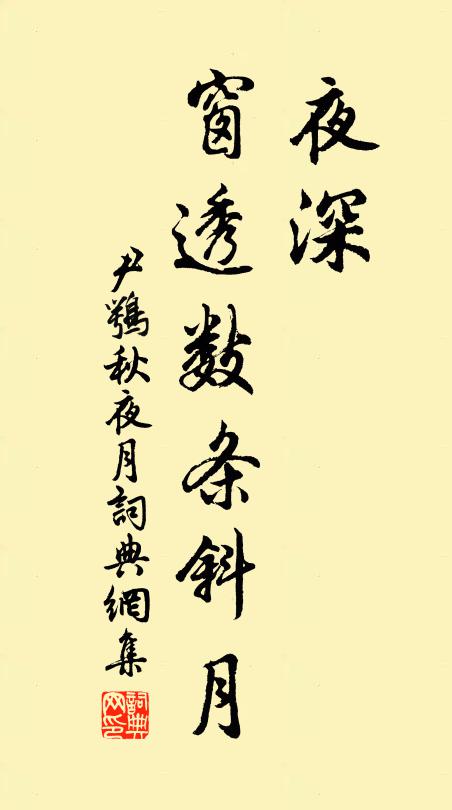 夜深
窗透数条斜月
尹鶚秋夜月詞典網集
詞典网印